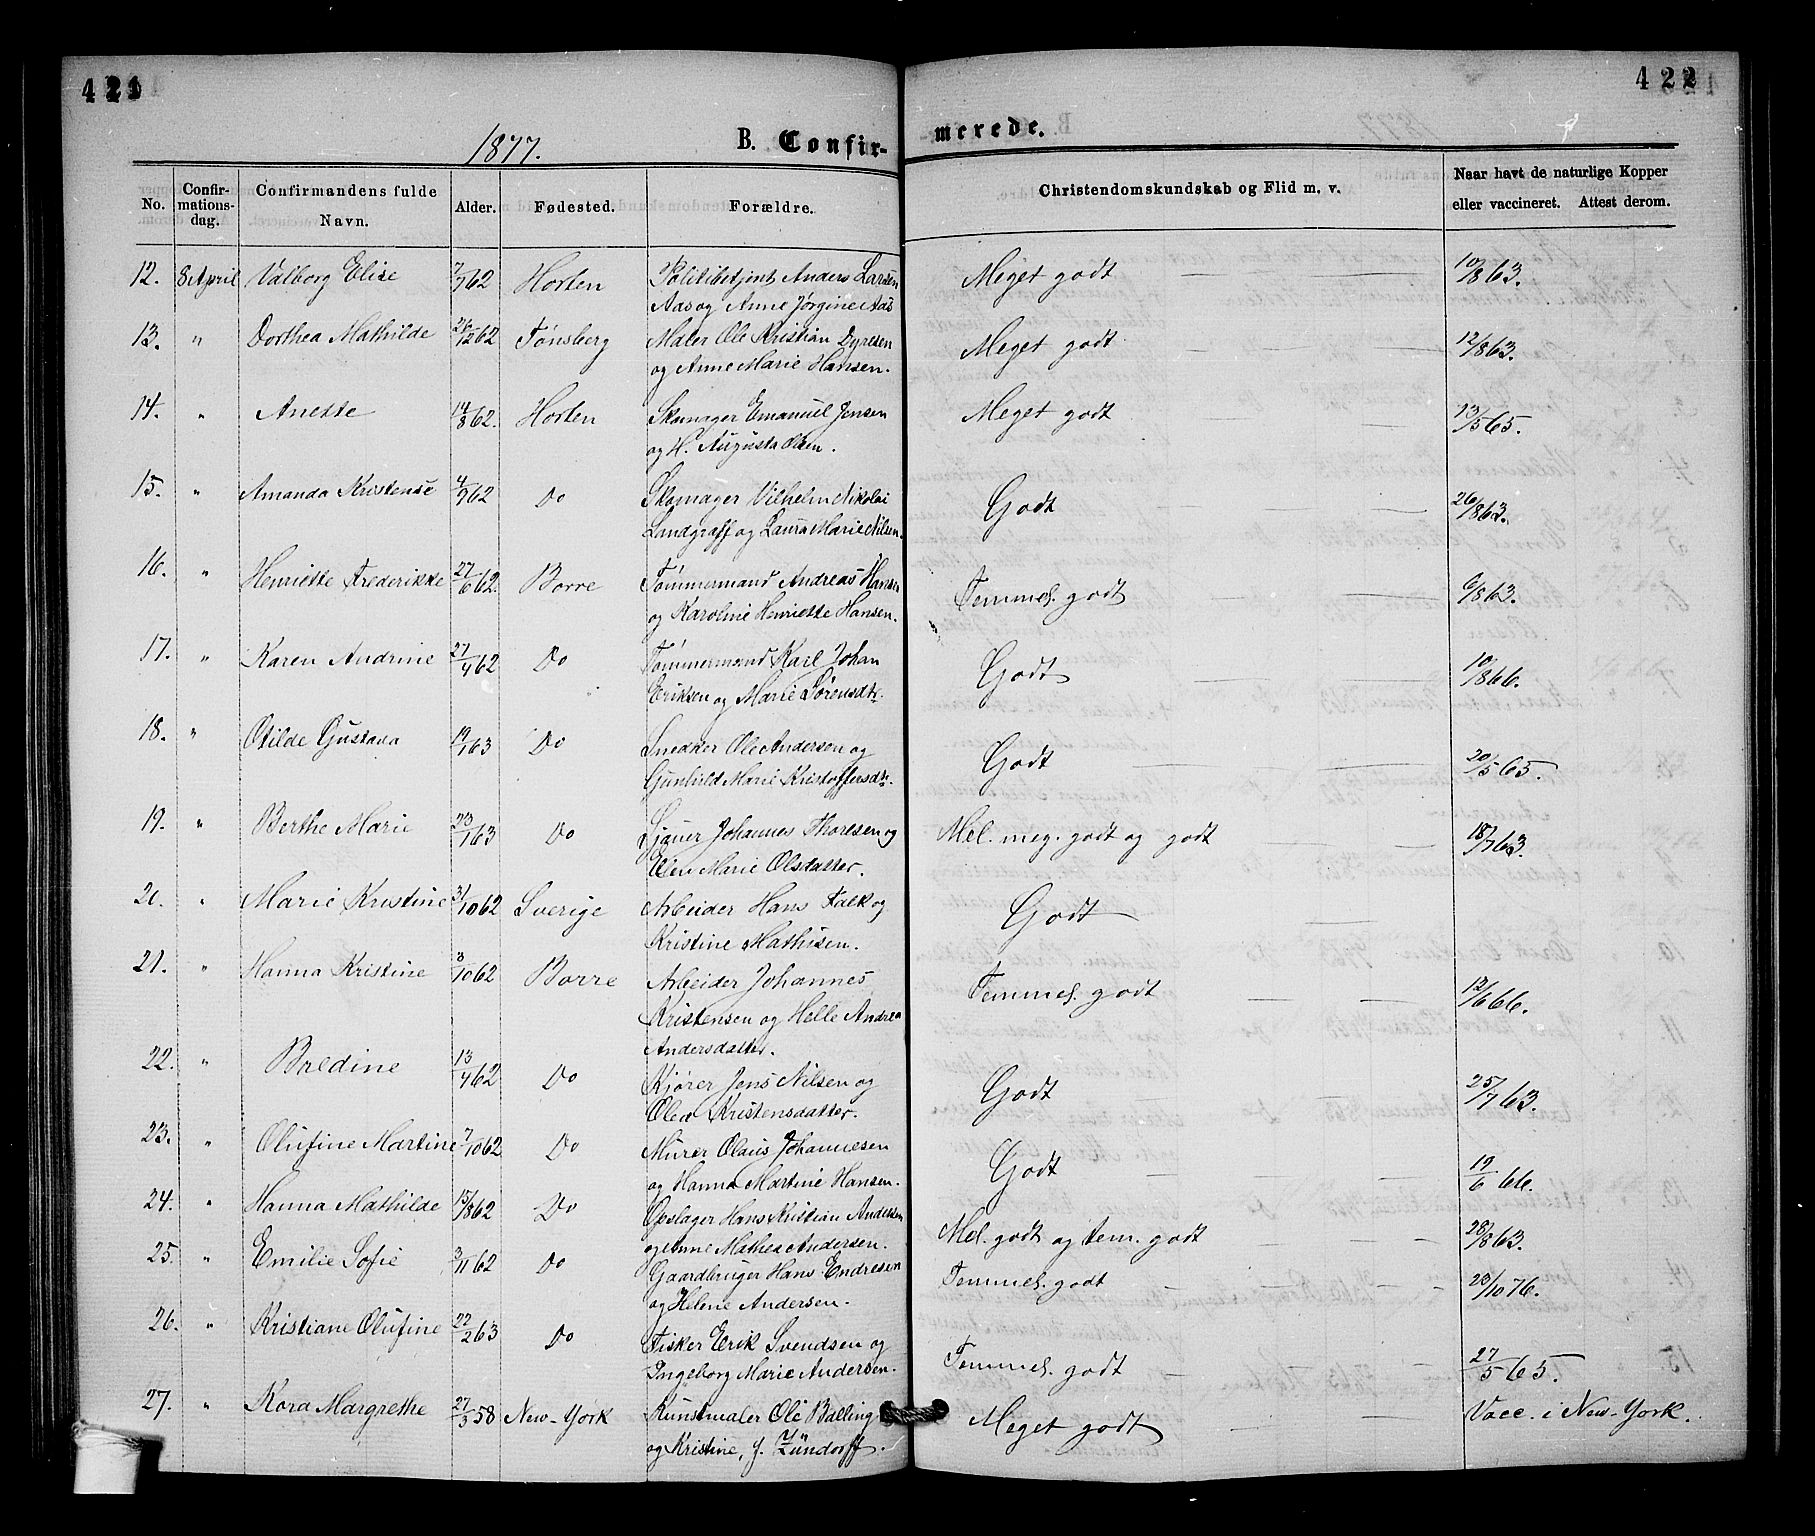 421
422
1877.
B. Confir-
merede.
No.
Confir-
mations-
dag.
Confirmandens fulde
Navn.
Alder.
Fødested.
Forældre.
Christendomskundskab og Flid m. v.
Naar havt de naturlige Kopper
eller vaccineret. Attest derom.
12. 8 April Valborg Elise 7/7 62 Horten Politibetjent Anders Larsen Meget godt — — — 10/8 63.
Aas og Anne Jørgine Aas
13. " Dorthea Mathilde 26/12 62 Tønsberg Maler Ole Kristian Dyresen Meget godt — — — 12/8 63.
og Anne Marie Hansen.
14. " Anette 14/8 62. Horten Skomager Emanuel Jensen Meget godt — — — 13/5 65.
og H. Augusta Olsen.
15. " Amanda Kristense 4/9 62 Do Skomager Vilhelm Nikolai Godt — — — 26/8 63.
Landgraff og Laura Marie Nilsen.
16. " Henriette Frederikke 27/6 62. Borre Tømmermand Andreas Hansen Temmel. godt — — — 6/8 63.
og Karoline Henriette Hansen.
17. " Karen Andrine 27/4 62 Do Tømmermand Karl Johan Godt — — — 10/8 66.
Eriksen og Marie Sørensdtr.
18. " Otilde Gustava 19/1 63 Do Snedker Ole Andersen og Godt — — — 20/5 65.
Gunhild Marie Kristoffersdtr.
19. " Berthe Marie 23/1 63 Do Sjauer Johannes Thoresen og Mel. meg. godt og godt — — 18/7 63.
Elen Marie Olsdatter.
20. " Marie Kristine 31/10 62 Sverige Arbeider Hans Falk og Godt — — —
Kristine Mathisen.
21. " Hanna Kristine 3/10 62 Borre Arbeider Johannes Temmel. godt — — — 12/6 66.
Kristensen og Helle Andrea
Andersdatter.
22. " Baldine 13/4 62 Do Kjører Jens Nilsen og Godt — — — 25/7 63.
Olea Kristensdatter.
23. " Olufine Martine 7/10 62 Do Murer Olaus Johannesen Godt — — — 19/6 66.
og Hanna Martine Hansen.
24. " Hanna Mathilde 15/8 62 Do Opslager Hans Kristian Andersen Mel. godt og tem. godt — — 28/8 63.
og Anne Mathea Andersen.
25. " Emilie Sofie 3/11 62 Do Gaardbruger Hans Endresen Temmel. godt — — — 23/10 76.
og Helene Andersen.
26. " Kristiane Olufine 22/2 63 Do Fisker Erik Svendsen og Temmel. godt — — — 27/5 65.
Ingeborg Marie Andersen.
27. " Kora Margrethe 27/3 58 New-York Kunstmaler Ole Balling Meget godt — — — Vacc. i New-York.
og Kristine, f. Zündorff.